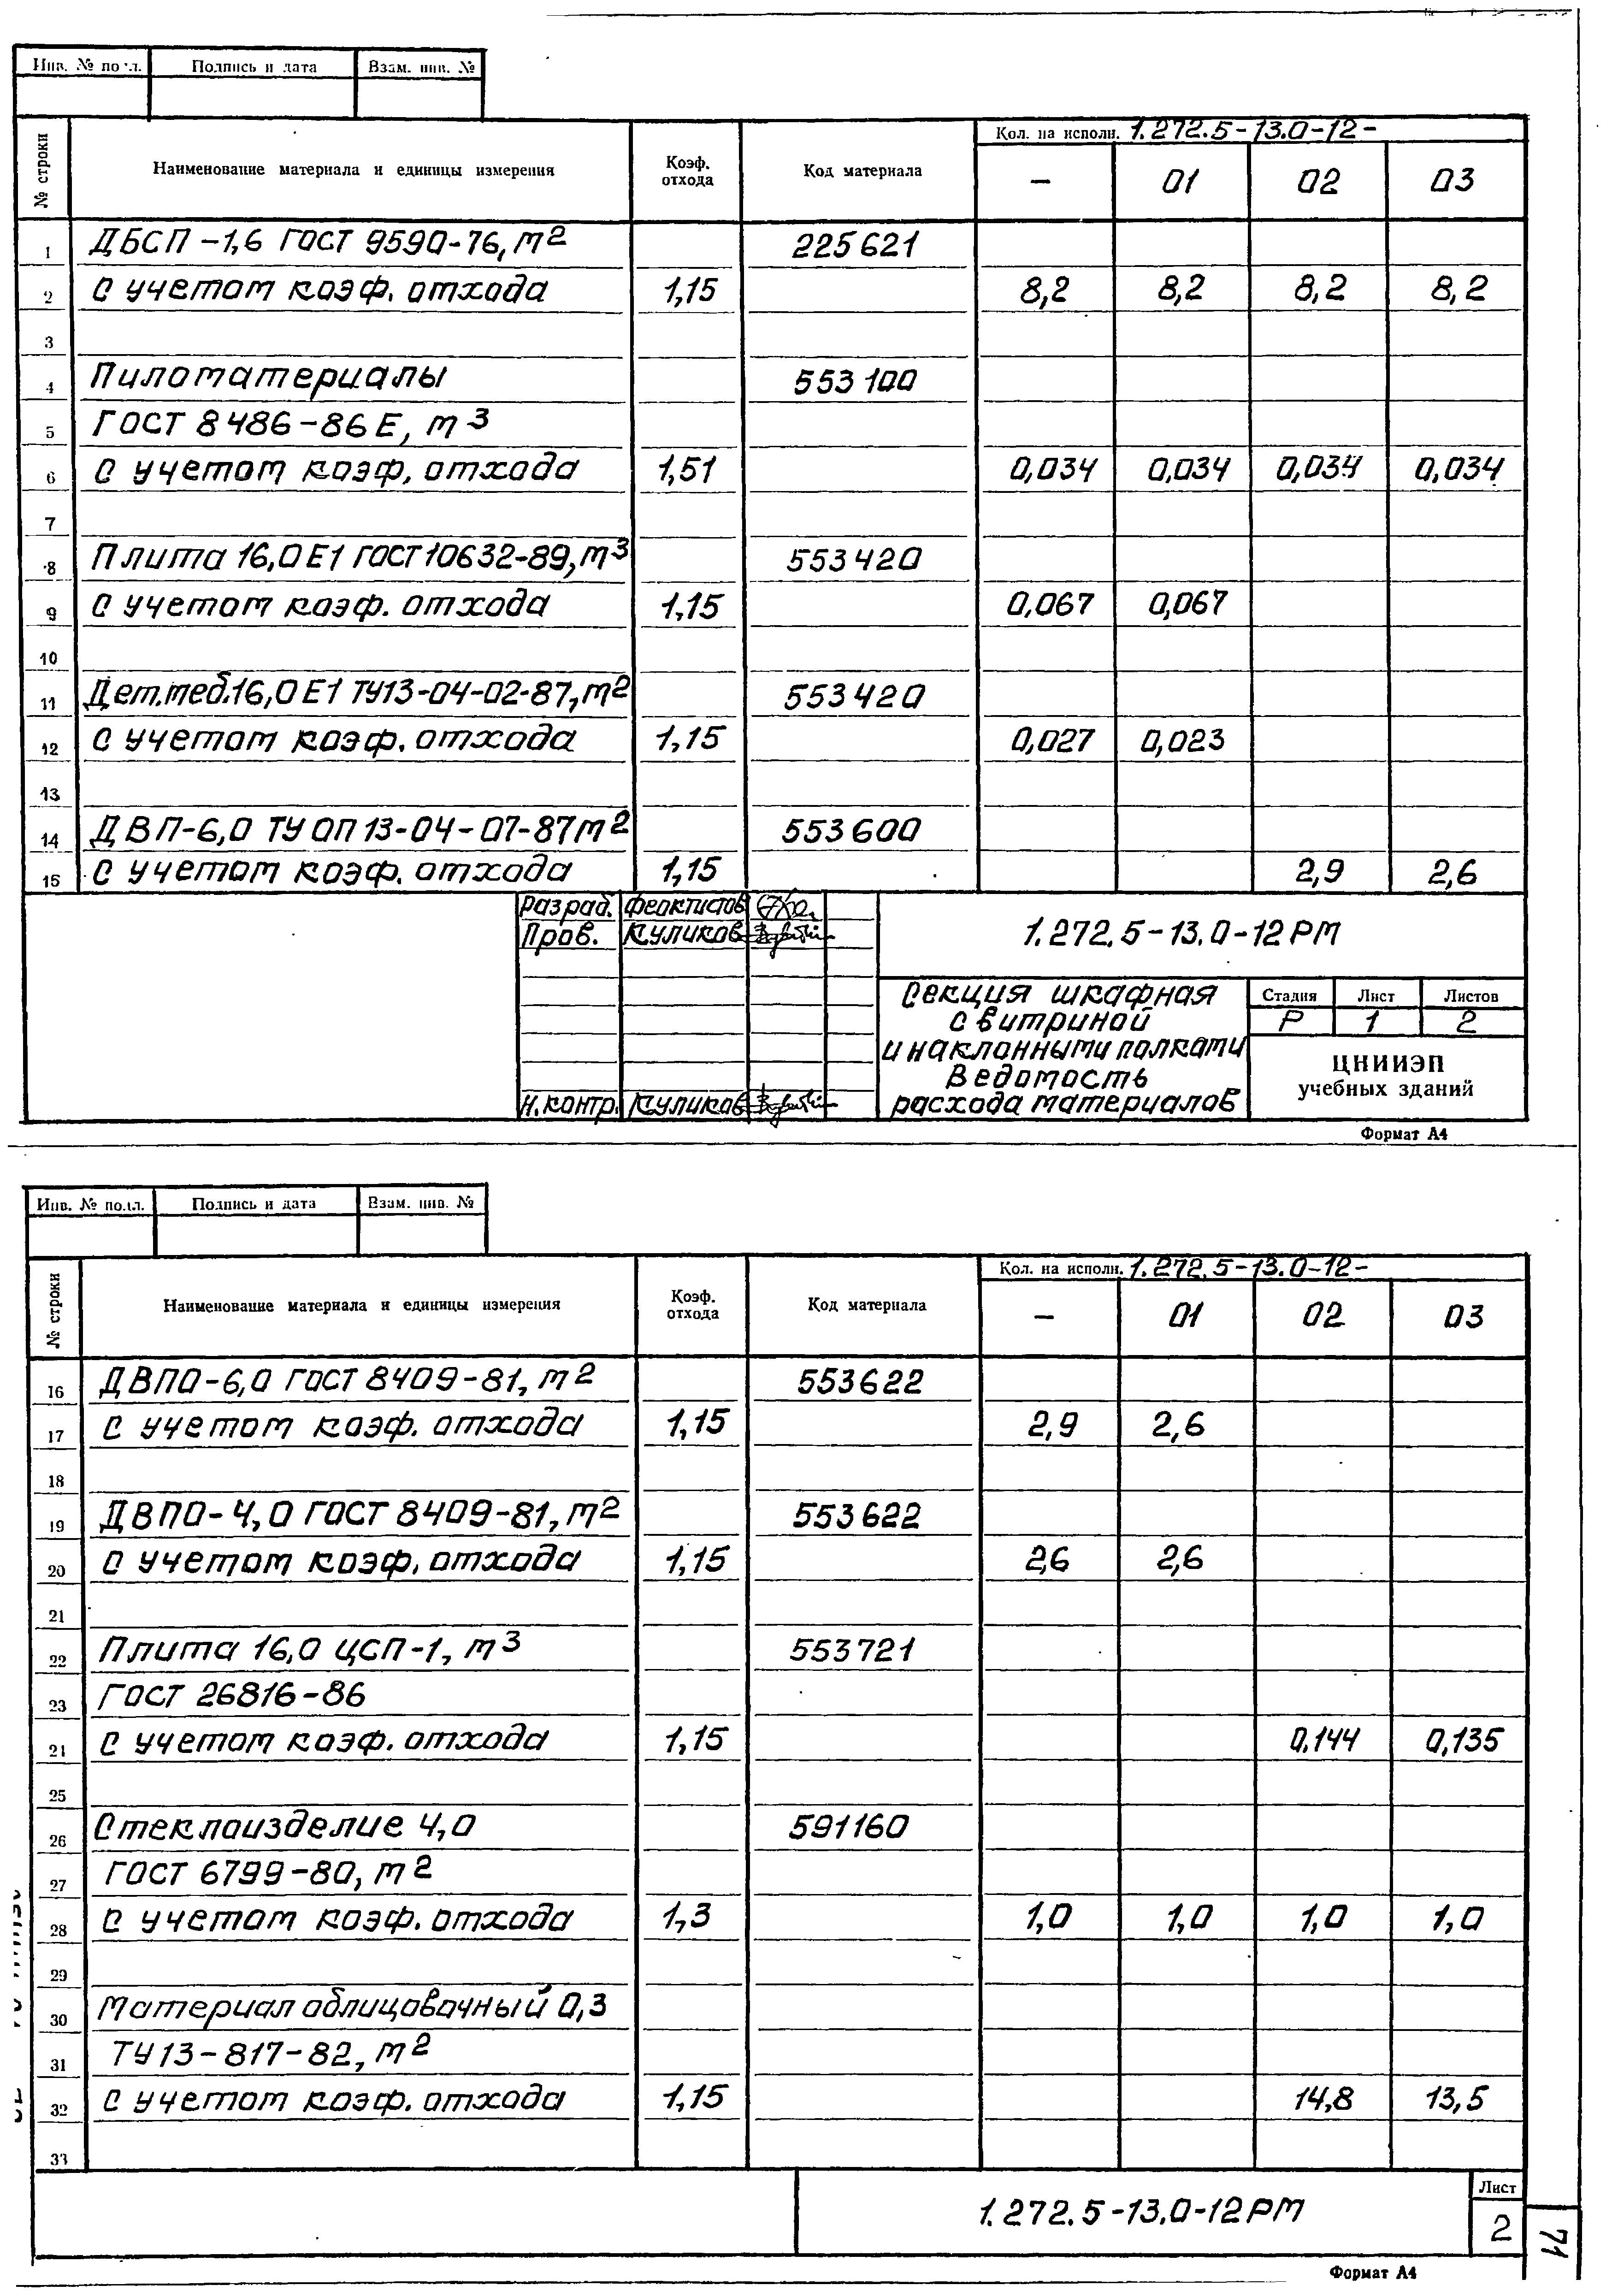 Инв. № подл. Подпись и дата Взам. инв. №
№ строки Наименование материала и единицы измерения Коэф. отхода Код материала Кол. на исполн. 1.272.5-13.0-12-
— 01 02 03
1 ДБСП-1,6 ГОСТ 9590-76, м2 225621
2 С учетом коэф. отхода 1,15 8,2 8,2 8,2 8,2
3
4 Пиломатериалы 553100
5 ГОСТ 8486-86Е, м3
6 С учетом коэф. отхода 1,51 0,034 0,034 0,034 0,034
7
8 Плита 16,0 Е1 ГОСТ 10632-89, м3 553420
9 С учетом коэф. отхода 1,15 0,067 0,067
10
11 Дет.меб.16,0 Е1 ТУ13-04-02-87, м2 553420
12 С учетом коэф. отхода 1,15 0,027 0,023
13
14 ДВП-6,0 ТУ ОП 13-04-07-87 м2 553600
15 С учетом коэф. отхода 1,15 2,9 2,6
Разраб. Феоктистов
Пров. Куликов
Н.контр. Куликов
1.272.5-13.0-12РМ
Секция шкафная
с витриной
и наклонными полками
Ведомость
расхода материалов
Стадия Лист Листов
Р 1 2
ЦНИИЭП
учебных зданий
Формат А4
Инв. № подл. Подпись и дата Взам. инв. №
№ строки Наименование материала и единицы измерения Коэф. отхода Код материала Кол. на исполн. 1.272.5-13.0-12-
— 01 02 03
16 ДВПО-6,0 ГОСТ 8409-81, м2 553622
17 С учетом коэф. отхода 1,15 2,9 2,6
18
19 ДВПО-4,0 ГОСТ 8409-81, м2 553622
20 С учетом коэф. отхода 1,15 2,6 2,6
21
22 Плита 16,0 ЦСП-1, м3 553721
23 ГОСТ 26816-86
24 С учетом коэф. отхода 1,15 0,144 0,135
25
26 Стеклоизделие 4,0 591160
27 ГОСТ 6799-80, м2
28 С учетом коэф. отхода 1,3 1,0 1,0 1,0 1,0
29
30 Материал облицовочный 0,3
31 ТУ13-817-82, м2
32 С учетом коэф. отхода 1,15 14,8 13,5
33
1.272.5-13.0-12РМ
Лист
2
71
Формат А4